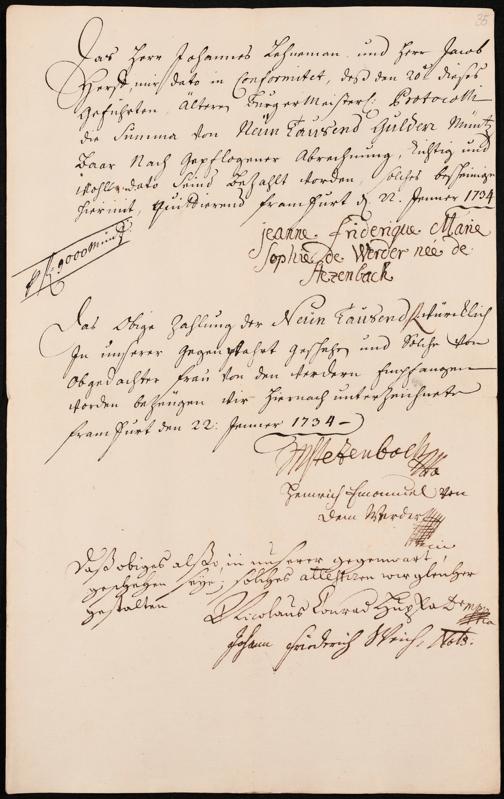 35
Das Herr Johannes Lehneman, und Herr Jacob
mir dato in Conformitet, deß den 20t dieses
Geführten Älteren Burgermeister Protocolli
die Summa von Neün Tausend Gulden Müntz
Baar Nach Gepflogener Abrechnung, Richtig und
wohl dato bezahlt worden, solches bescheinige
hiermit, quittierend Franckfurt d. 22. Jenner 1734
jeanne friderique Marie
Sophie de Werder née de
Stezenbach
9000 müntz
Das Obige Zahlung der Neün Tausend f würcklich
In unserer Gegenwahrt Geschehen und Solche von
Obgedachter Frau von den Werdern Empfangen
worden bezeügen wir hiernach unterzeichnete
Franckfurt den 22: Jenner 1734
Stezenbach
Heinrich Emanuel von
dem Werder
Daß obiges also in unserer gegenwart,
geschehen seye, solches attestiren wir gleicher
gestalten
Nicolaus Conrad
Johann Friederich Nots.